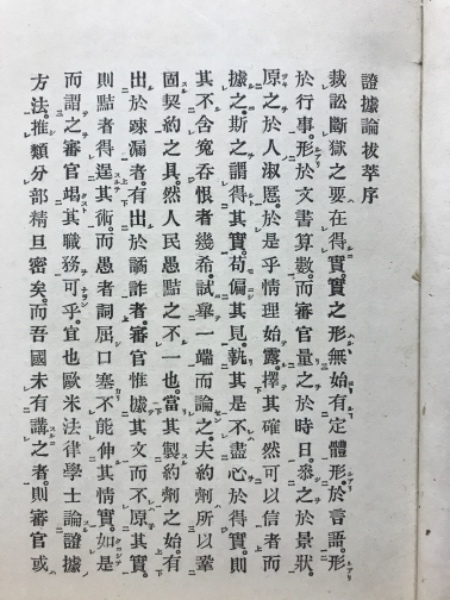 證據論拔萃序
裁訟斷獄之要在得實。實之形無始有定體形。於言語。形
於行事。形於文書算數。而審官量之於時日。叅之於景狀。
原之於人淑慝。於是乎情理始露。擇其確然可以信者而
據之。斯之謂得其實。苟偏其見。執其是不盡心於得實。則
其不含寃吞恨者幾希。試舉一端而論之。夫約劑所以鞏
固契約之具。然人民愚黠之不一也。當其製約劑之始。有
出於疎漏者。有出於譎詐者。審官惟據其文而不原其實。
則黠者得逞其術。而愚者詞屈口塞不能伸其情實。如是
而謂之審官竭其職務可乎。宜也歐米法律學士論證據
方法。推類分部精且密矣。而吾國未有講之者。則審官或